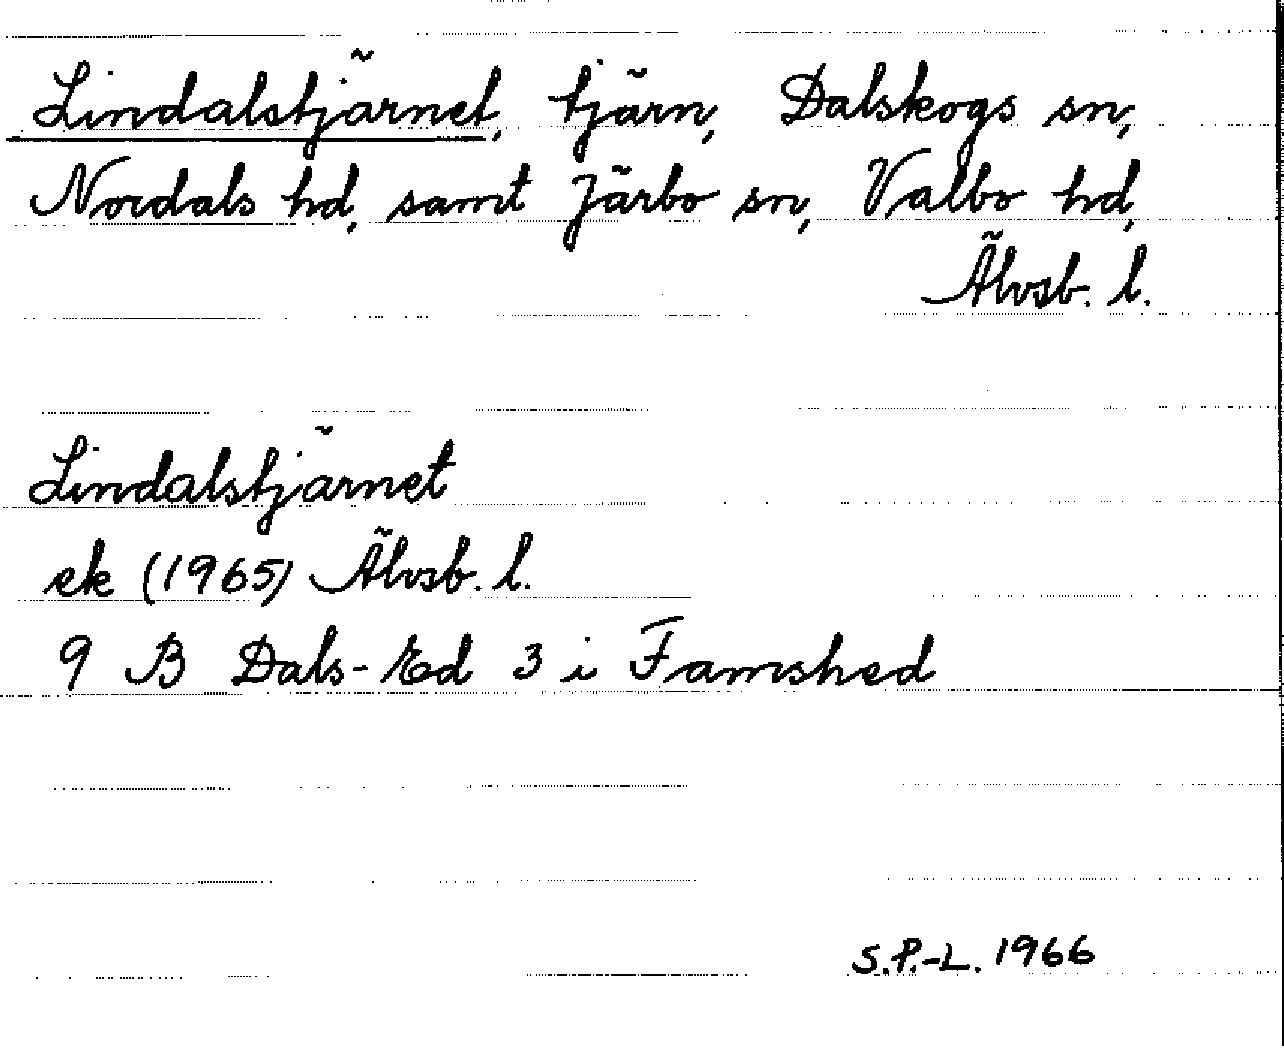 Lindalstjärnet, tjärn, Dalskogs sn,
Nordals hd, samt Järbo sn, Valbo hd,
Älvsb. l.
Lindalstjärnet
ek (1965) Älvsb. l.
9 B Dals-Ed 3 i Famshed
S.P.-L. 1966